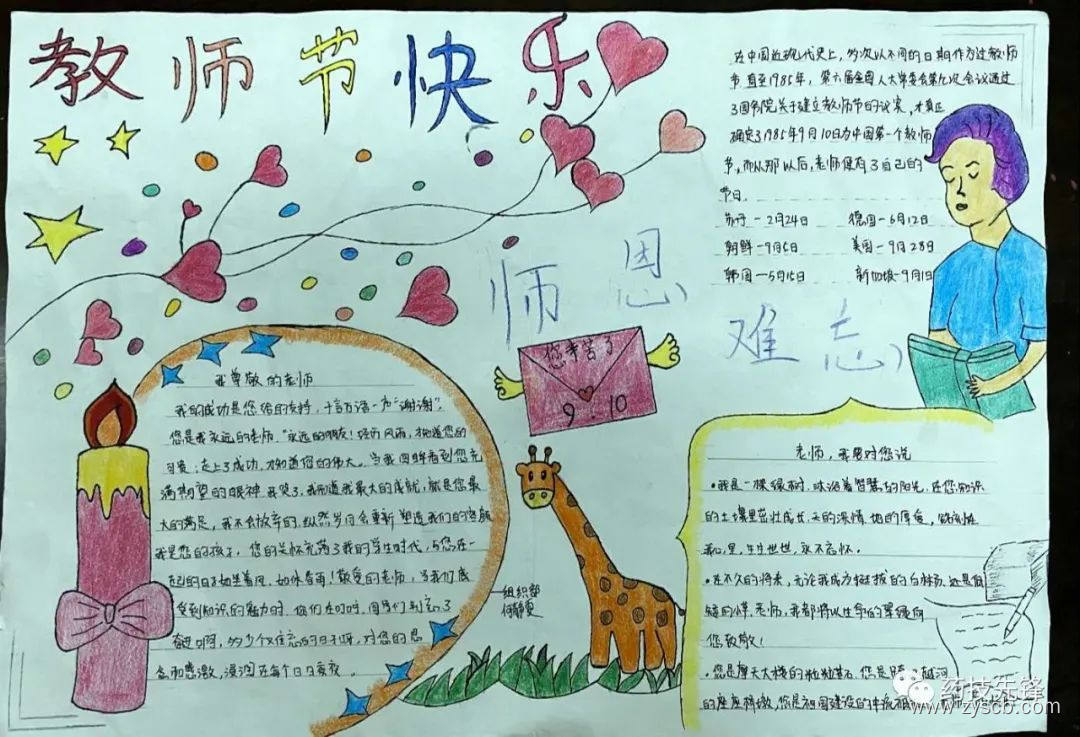 教师节快乐
在中国近现代史上，多次以不同的日期作为过教师
节.直至1985年，第六届全国人大常委会第九次会议通过
了国务院关于建立教师节的议案，才真正
确定了1985年9月10日为中国第一个教师
节，而从那以后，老师便有了自己的
节日。
苏丹－2月24日 德国－6月12日
朝鲜－9月5日 美国－9月28日
韩国－5月15日 新加坡－9月1日
师恩
难忘
您辛苦了
9.10
我尊敬的老师
我的成功是您给的支持，千言万语一声“谢谢”，
您是我永远的老师，永远的朋友！经历风雨，才知道您的
可贵；走上了成功，才知道您的伟大。当我回眸看到您充
满期望的眼神 我哭了，我知道我最大的成就，就是您最
大的满足，我不会放弃的，纵然岁月会重新塑造我们的容颜
我是您的孩子，您的关怀充满了我的学生时代，与您在一
起的日子如坐春风，如沐春雨！敬爱的老师，
受到知识的魅力时
多少个难忘的日子呀，对您的思
念和感激，浸润在每个日日夜夜。
组织部
老师，我要对您说
·我是一棵绿树，沐浴着智慧的阳光，在您知识
的土壤里茁壮成长，天的深情，地的厚爱，铭刻在
我心里，生生世世，永不忘怀。
·在不久的将来，无论我成为挺拔的白桦
老师，我都将以生命的翠绿向
您致敬！
·您是摩天大楼的 您是
的座座桥墩，您是祖国建设的
红技先锋
www.zyscb.com